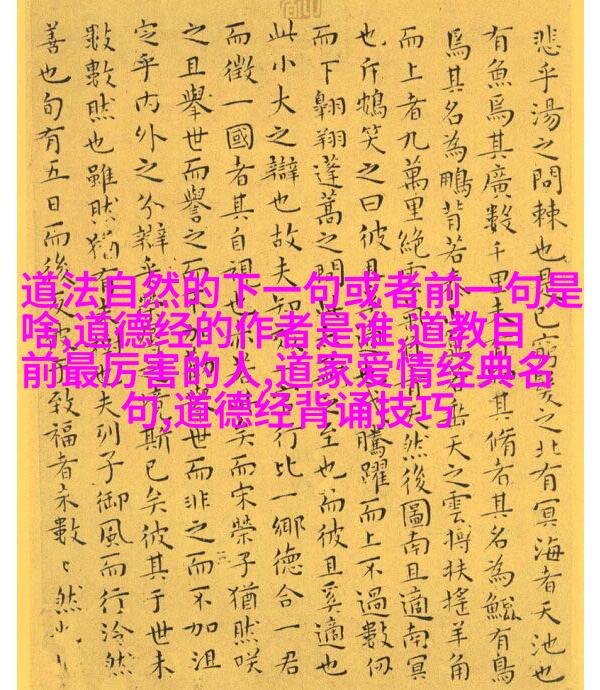 道法自然的下一句或者前一句是
啥,道德经的作者是谁,道教目
前最厉害的人,道家爱情经典名
句,道德经背诵技巧
悲乎湯之問棘也是已窮髮之北有冥海者天池也
有魚焉其廣數千里未有其脩者其名為鯤有鳥
焉其名為鵬背若垂天之雲摶扶搖羊角
而上者九萬里絕雲天然後圖南且適南冥
也斥鴳笑之曰彼且騰躍而上不過數仞
而下翱翔蓬蒿之間至也而彼且奚適也
此小大之辯也故夫知行比一鄉德合一君
而徵一國者其自視也矣而宋榮子猶然咲
之且舉世而譽之而舉世而非之而不加沮
定乎內外之分辯乎竟斯已矣彼其于世未
數數然也雖然猶有夫列子御風而行泠然
善也旬有五日而後反致福者未數〻然也